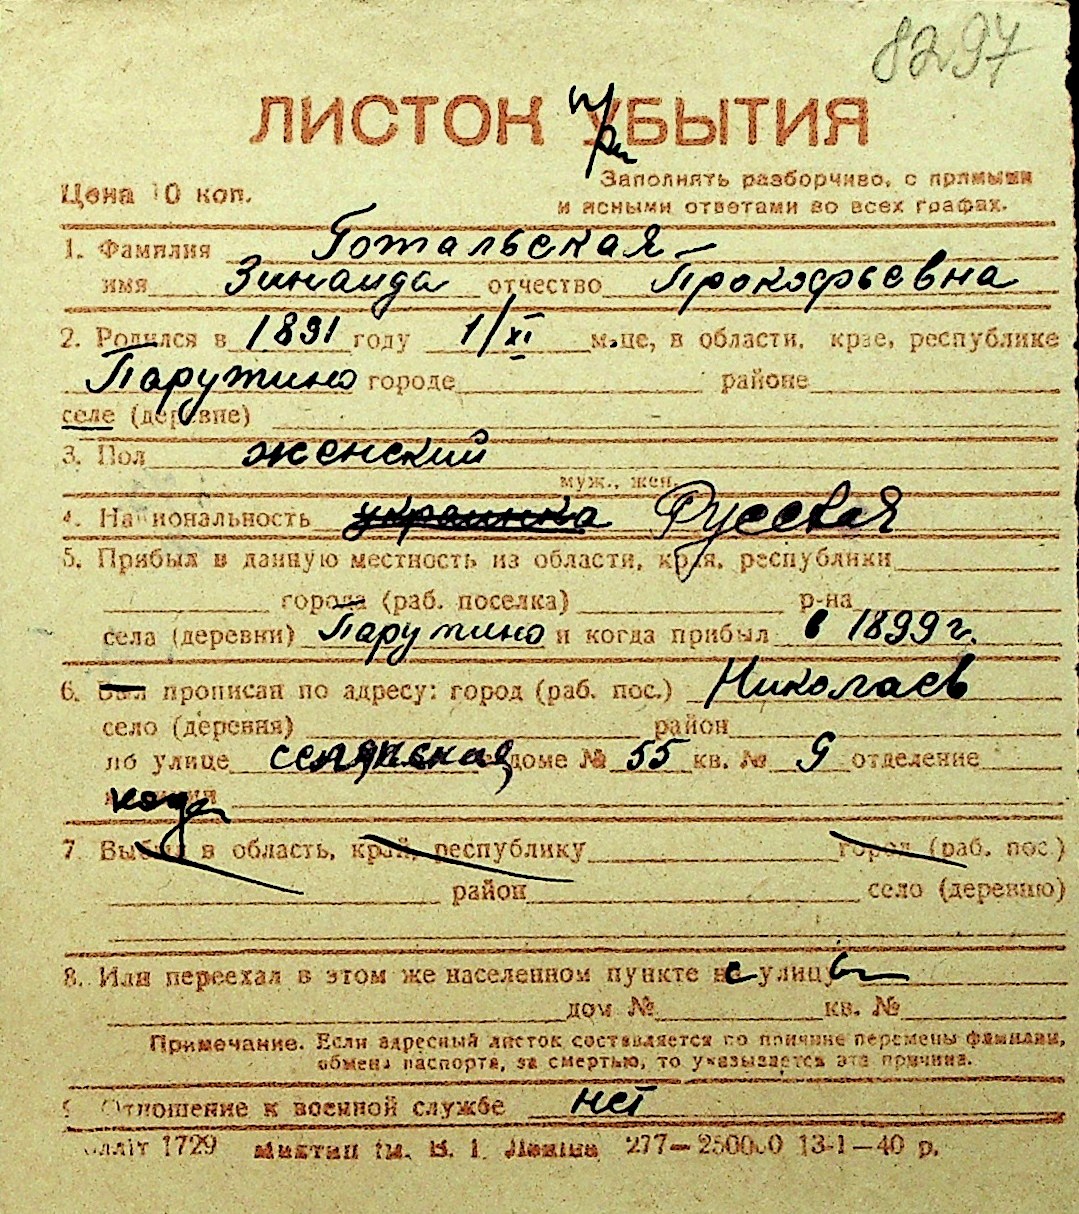 8297
ЛИСТОК УБЫТИЯ
при
Цена 10 коп.
Заполнять разборчиво, с прямыми
и ясными ответами во всех графах.
1. Фамилия Готальская
имя Зинаида отчество Прокофьевна
2. Родился в 1891 году 1/XI м-це, в области, крае, республике
Парутино городе районе
селе (деревне)
3. Пол женский
муж., жен.
4. Национальность украинка Русская
5. Прибыл в данную местность из области, края, республики
города (раб. поселка) р-на
села (деревни) Парутино и когда прибыл в 1899 г.
6. Был прописан по адресу: город (раб. пос.) Николаев
село (деревня) район
по улице доме № 55 кв. № 9 отделение
7. Выбыл в область, край, республику город (раб. пос.)
район село (деревню)
8. Или переехал в этом же населенном пункте с улицы
дом № кв. №
Примечание. Если адресный листок составляется по причине перемены фамилии,
обмена паспорта, за смертью, то указывается эта причина.
9. Отношение к военной службе нет
лліт 1729 ім. В. І. Леніна 277—250000 13-1—40 р.